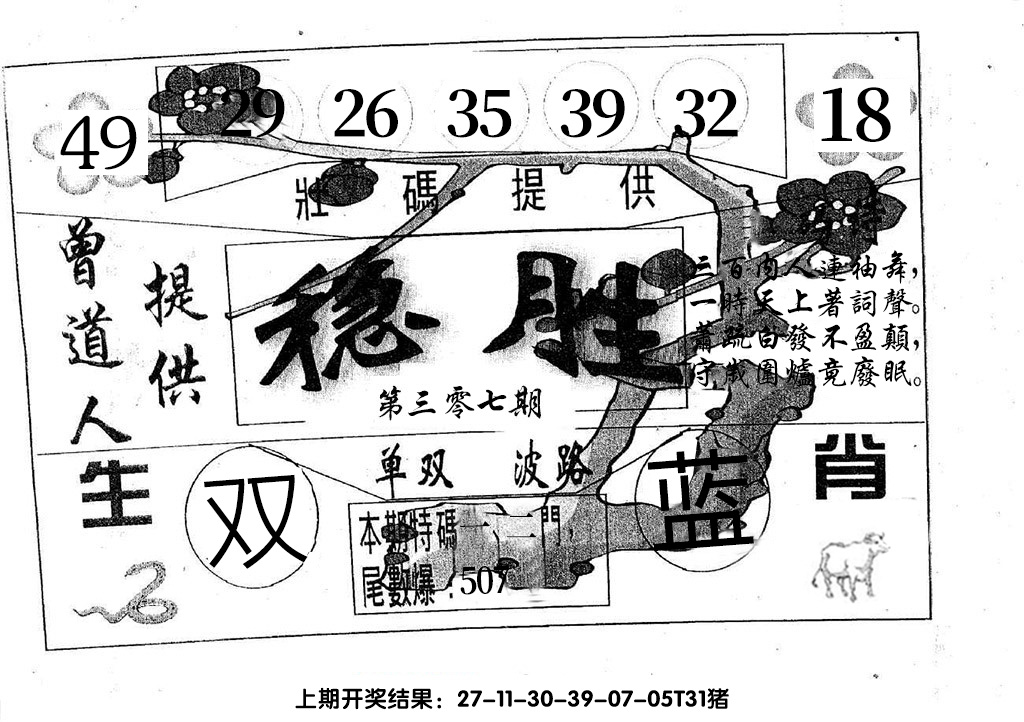 49 29 26 35 39 32 18
壯碼提供
曾道人
提供
特
三百内人連袖舞，
一時天上著詞聲。
蕭疏白發不盈顛，
守歲圍爐竟廢眠。
稳胜
第三零七期
单双 波路
生 双 蓝 肖
本期特碼一、二門，
尾數爆：507
上期开奖结果：27-11-30-39-07-05T31猪